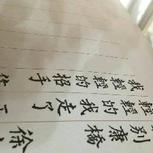 別康橋
徐
輕輕的我走了
我輕輕的招手